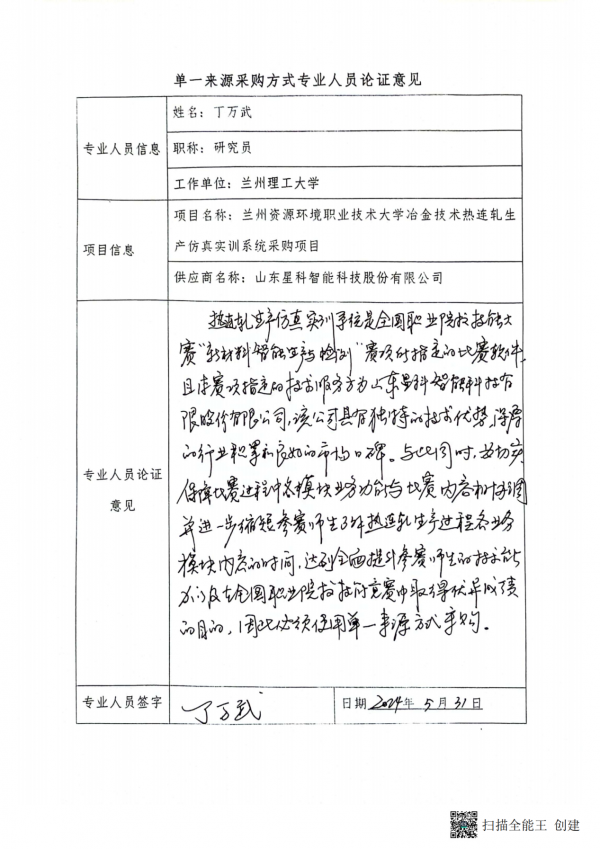 单一来源采购方式专业人员论证意见
专业人员信息
姓名：丁万武
职称：研究员
工作单位：兰州理工大学
项目信息
项目名称：兰州资源环境职业技术大学冶金技术热连轧生
产仿真实训系统采购项目
供应商名称：山东星科智能科技股份有限公司
专业人员论证
意见
热连轧生产仿真实训系统是全国职业院校技能大
赛“新材料智能生产与检测”赛项所指定的比赛软件，
且该赛项指定的技术服务方为山东星科智能科技有
限股份有限公司，该公司具有独特的技术优势、深厚
的行业积累和良好的市场口碑。与此同时，为切实
保障比赛过程中各模块业务功能与比赛内容相协调
并进一步缩短参赛师生了解热连轧生产过程各业务
模块内容的时间，达到全面提升参赛师生的技术能
力以及在全国职业院校技能竞赛中取得优异成绩
的目的，因此必须使用单一来源方式采购。
专业人员签字
丁万武
日期 2024年 5月 31日
扫描全能王 创建